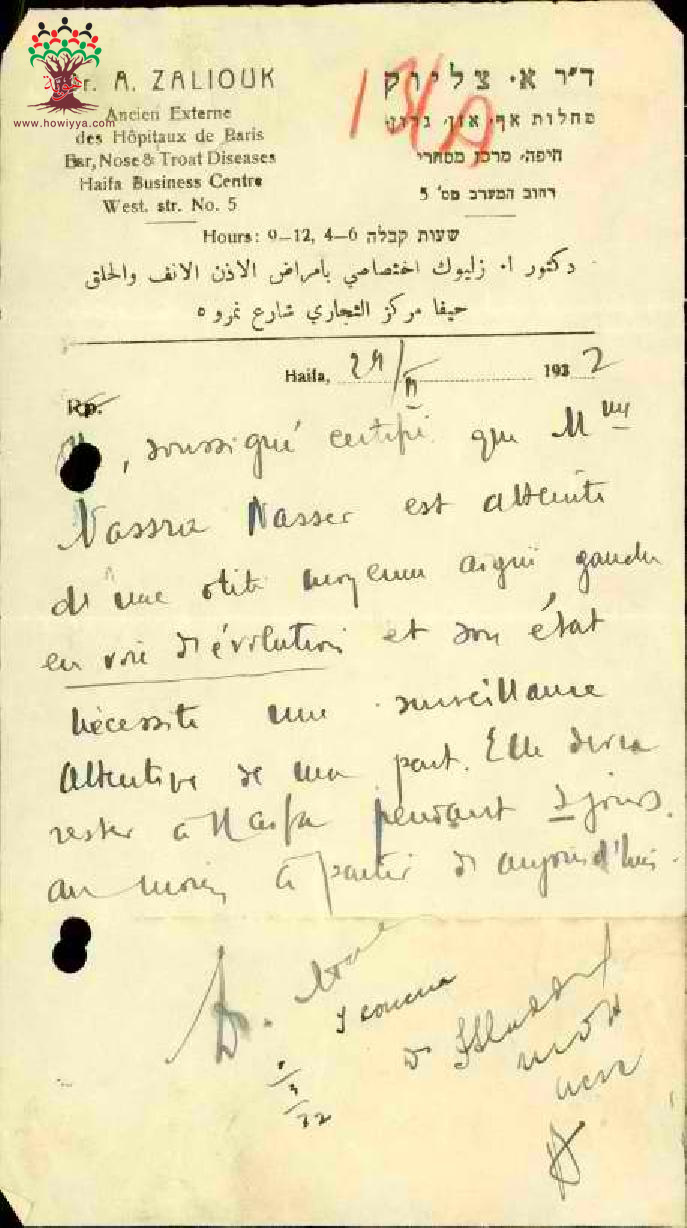 Dr. A. ZALIOUK
Ancien Externe
des Hôpitaux de Paris
Ear, Nose & Troat Diseases
Haifa Business Centre
West. str. No. 5
ד״ר א. צליוק
מחלות אף, אזן, גרון
חיפה, מרכז מסחרי
רחוב המערב מס' 5
www.howiyya.com
Hours: 9–12, 4–6 שעות קבלה
دكتور ا. زليوك اختصاصي بامراض الاذن الانف والحلق
حيفا مركز التجاري شارع نمرو ٥
Haifa, 29/II 1932
Rp.
, soussigné certifie que Mme
Nassra Nasser est atteinte
de une otite moyenne aigue gauche
en voie d'évolution et son état
nécessite une surveillance
attentive de ma part. Elle devra
rester à Haifa pendant jours
au moins à partir de aujourd'hui.
Dr.
I concur